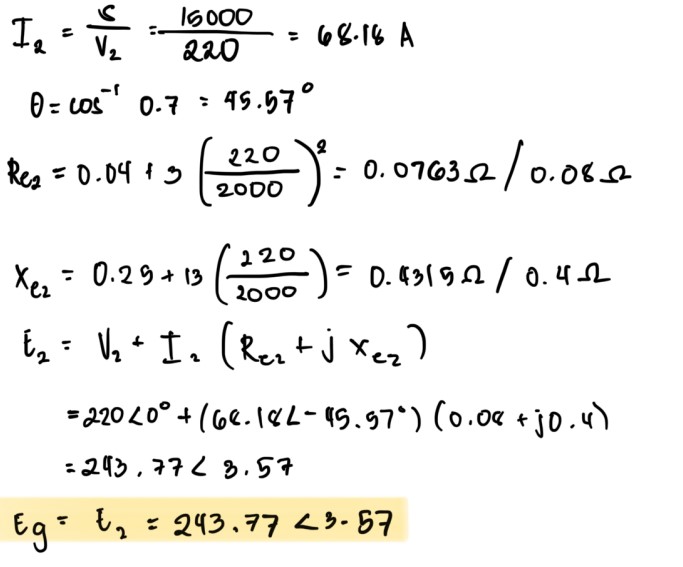 I₂ = S/V₂ = 15000/220 = 68.18 A
θ = cos⁻¹ 0.7 = 45.57°
Re₂ = 0.04 + 3 (220/2000)² = 0.0763 Ω / 0.08 Ω
Xe₂ = 0.25 + 13 (220/2000) = 0.4315 Ω / 0.4 Ω
E₂ = V₂ + I₂ (Re₂ + j Xe₂)
= 220 ∠0° + (68.18 ∠-45.57°) (0.08 + j0.4)
= 243.77 < 3.57
Eg = E₂ = 243.77 < 3.57